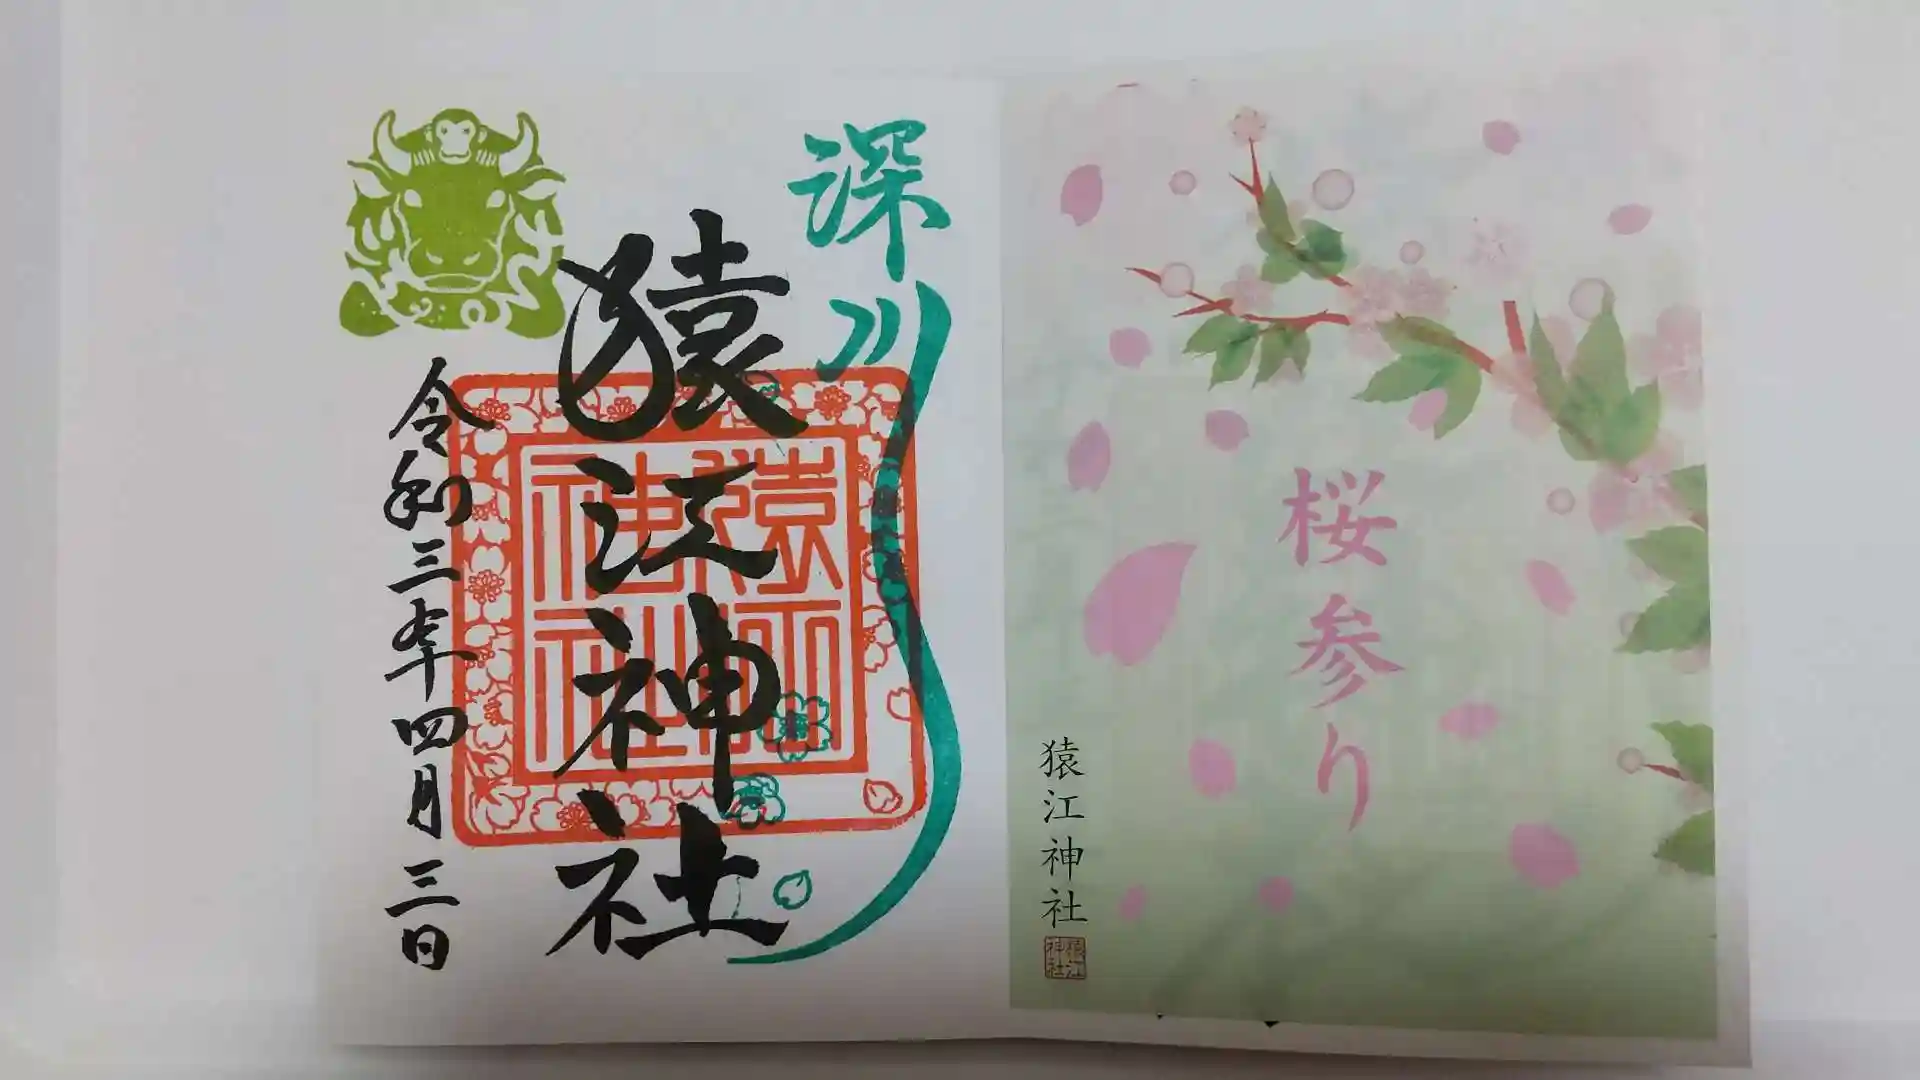 桜参り
猿江神社
猿江
神社
深川
猿江神社
猿江
神社
令和三年四月三日